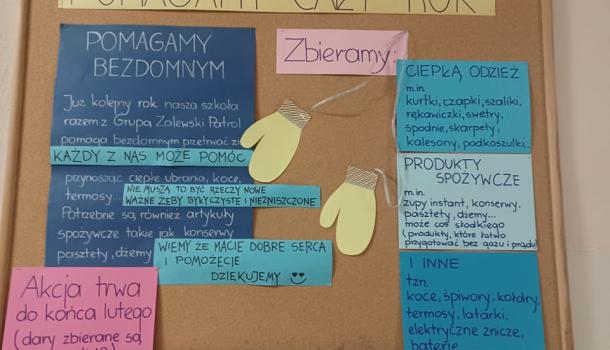 POMAGAMY CAŁY ROK
POMAGAMY
BEZDOMNYM
Już kolejny rok nasza szkoła
razem z Grupą Zalewski Patrol
pomaga bezdomnym przetrwać
KAŻDY Z NAS MOŻE POMÓC
przynosząc ciepłe ubrania, koce,
termosy...
NIE MUSZĄ TO BYĆ RZECZY NOWE
WAŻNE ŻEBY BYŁY CZYSTE I NIEZNISZCZONE
Potrzebne są również artykuły
spożywcze takie jak konserwy,
pasztety, dżemy
WIEMY ŻE MACIE DOBRE SERCA
I POMOŻECIE
DZIĘKUJEMY
Akcja trwa
do końca lutego
(dary zbierane są
Zbieramy:
CIEPŁĄ ODZIEŻ
m.in.
kurtki, czapki, szaliki,
rękawiczki, swetry,
spodnie, skarpety,
kalesony, podkoszulki...
PRODUKTY
SPOŻYWCZE
m.in.
zupy instant, konserwy,
pasztety, dżemy...
może coś słodkiego
(produkty, które łatwo
przygotować bez gazu i prądu)
I INNE
tzn.
koce, śpiwory, kołdry,
termosy, latarki,
elektryczne znicze,
baterie